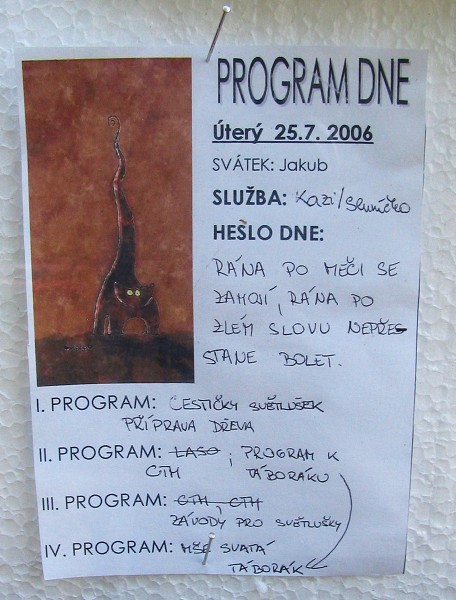 PROGRAM DNE
Úterý 25.7. 2006
SVÁTEK: Jakub
SLUŽBA: Kazi/Sluníčko
HESLO DNE:
RÁNA PO MEČI SE
ZAHOJÍ, RÁNA PO
ZLÉM SLOVU NEPŘES
STANE BOLET.
I. PROGRAM: CESTIČKY SVĚTLUŠEK
PŘÍPRAVA DŘEVA
II. PROGRAM: LASO, PROGRAM K
CTH TÁBORÁKU
III. PROGRAM: CTH, CTH
ZÁVODY PRO SVĚTLUŠKY
IV. PROGRAM: MŠE SVATÁ
TÁBORÁK